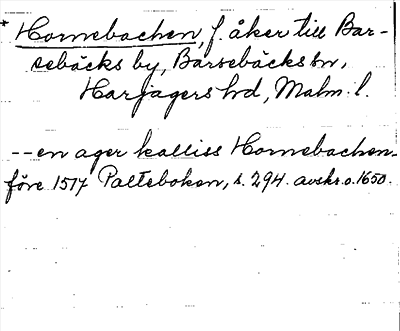 * Hornebachen, f. åker till Bar-
sebäcks by, Barsebäcks sn,
Harjagers hd, Malm. l.
-- en ager kalliss Hornebachen
före 1517 Palteboken, s. 294. avskr. o. 1650.